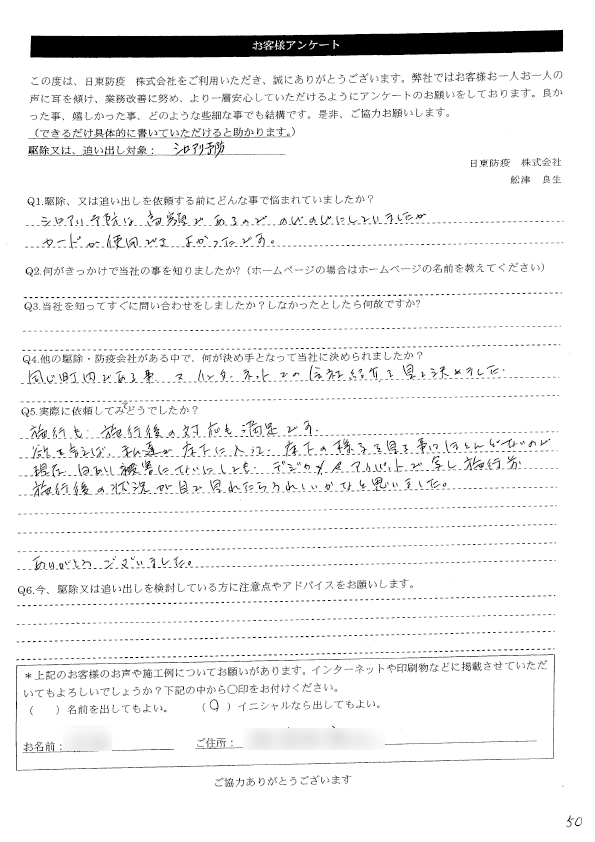 お客様アンケート
この度は、日東防疫　株式会社をご利用いただき、誠にありがとうございます。弊社ではお客様お一人お一人の
声に耳を傾け、業務改善に努め、より一層安心していただけるようにアンケートのお願いをしております。良か
った事、嬉しかった事、どのような些細な事でも結構です。是非、ご協力お願いします。
（できるだけ具体的に書いていただけると助かります。）
駆除又は、追い出し対象： シロアリ予防
日東防疫　株式会社
舩津　良生
Q1.駆除、又は追い出しを依頼する前にどんな事で悩まれていましたか？
シロアリ予防は高額であるので のびのびにしていましたが
カードが使用でき よかったです。
Q2.何がきっかけで当社の事を知りましたか?（ホームページの場合はホームページの名前を教えてください）
Q3.当社を知ってすぐに問い合わせをしましたか？しなかったとしたら何故ですか？
Q4.他の駆除・防疫会社がある中で、何が決め手となって当社に決められましたか？
同じ町内である事 インターネットでの会社紹介を見て決めました.
Q5.実際に依頼してみてどうでしたか？
施行も 施行後の対応も満足です.
欲を言えば、私達が床下に入って 床下の様子を見る事はほとんどないので
現在 白あり被害にないにしても デジカメ で写し施行前
施行後の状況が目で見れたらうれしいかなと思いました。
ありがとうございました。
Q6.今、駆除又は追い出しを検討している方に注意点やアドバイスをお願いします。
＊上記のお客様のお声や施工例についてお願いがあります。インターネットや印刷物などに掲載させていただ
いてもよろしいでしょうか？下記の中から〇印をお付けください。
（　　）名前を出してもよい。　（〇）イニシャルなら出してもよい。
お名前：　ご住所：
ご協力ありがとうございます
50